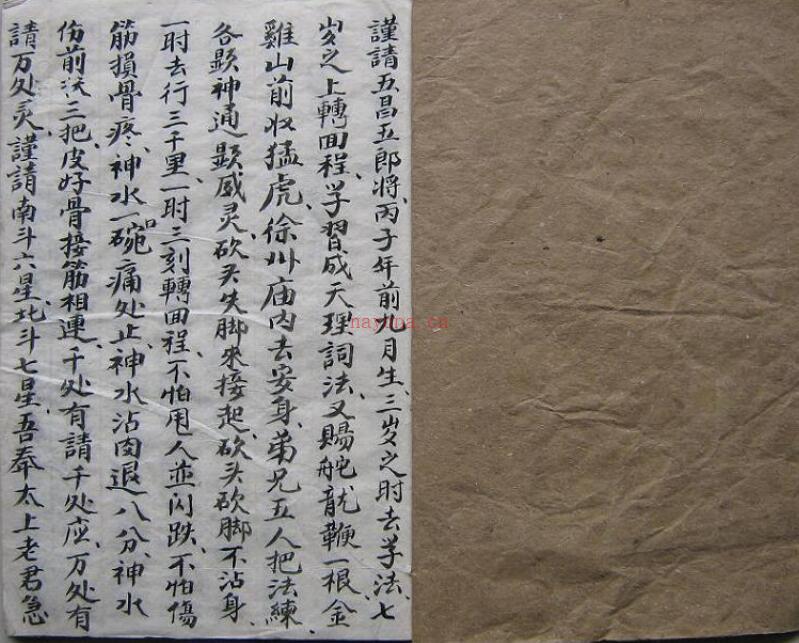 謹請五昌五郎将、丙子年前九月生、三岁之时去学法、七
岁之上轉囬程、学習成天理詞法、又賜䑨龍鞭一根、金
雞山前收猛虎、徐州庙内去安身、弟兄五人把法練、
各顕神通顕威灵、砍头失脚來接起、砍头砍脚不沾身、
一时去行三千里、一时三刻轉囬程、不怕甩人並闪跌、不怕傷
筋損骨疼、神水一碗痛处止、神水沾肉退八分、神水
伤前三把、皮好骨接筋相連、千处有請千处应、万处有
請万处灵、謹請南斗六星、北斗七星、吾奉太上老君急
nayona.ca